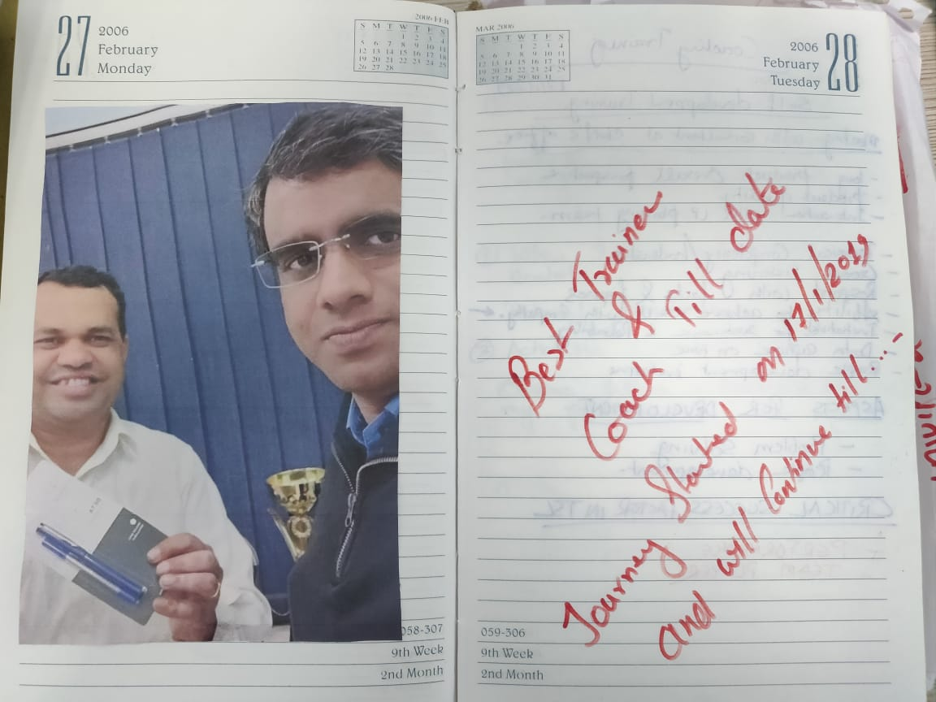 27
2006
February
Monday
2006 FEB
S M T W T F S
1 2 3 4
5 6 7 8 9 10 11
12 13 14 15 16 17 18
19 20 21 22 23 24 25
26 27 28
058-307
9th Week
2nd Month
MAR 2006
S M T W T F S
1 2 3 4
5 6 7 8 9 10 11
12 13 14 15 16 17 18
19 20 21 22 23 24 25
26 27 28 29 30 31
2006
February
Tuesday
28
Best Trainer
& Till date
Coach
Journey Started on 17/1/2019
and will Continue till....
059-306
9th Week
2nd Month